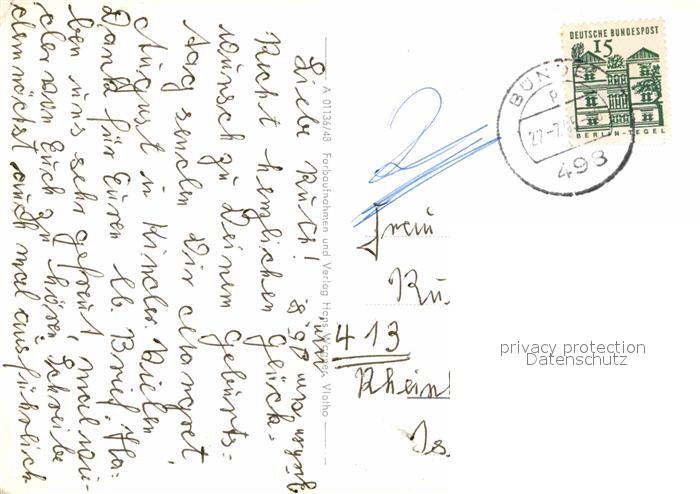 Liebe Ruth!
Recht herzlichen Glück-
wunsch zu Deinem Geburts-
tag senden Dir Margret,
August u. Kinder. Vielen
Dank für Euren lb. Brief. Ha-
ben uns sehr gefreut mal wie-
der von Euch zu hören. Schreibe
demnächst auch mal ausführlich
A 01136/48 Farbaufnahmen und Verlag Hans Wagner, Vlotho
DEUTSCHE BUNDESPOST
15
BERLIN-TEGEL
BÜNDE
498
Frau
Ru
413
Rhein
privacy protection
Datenschutz